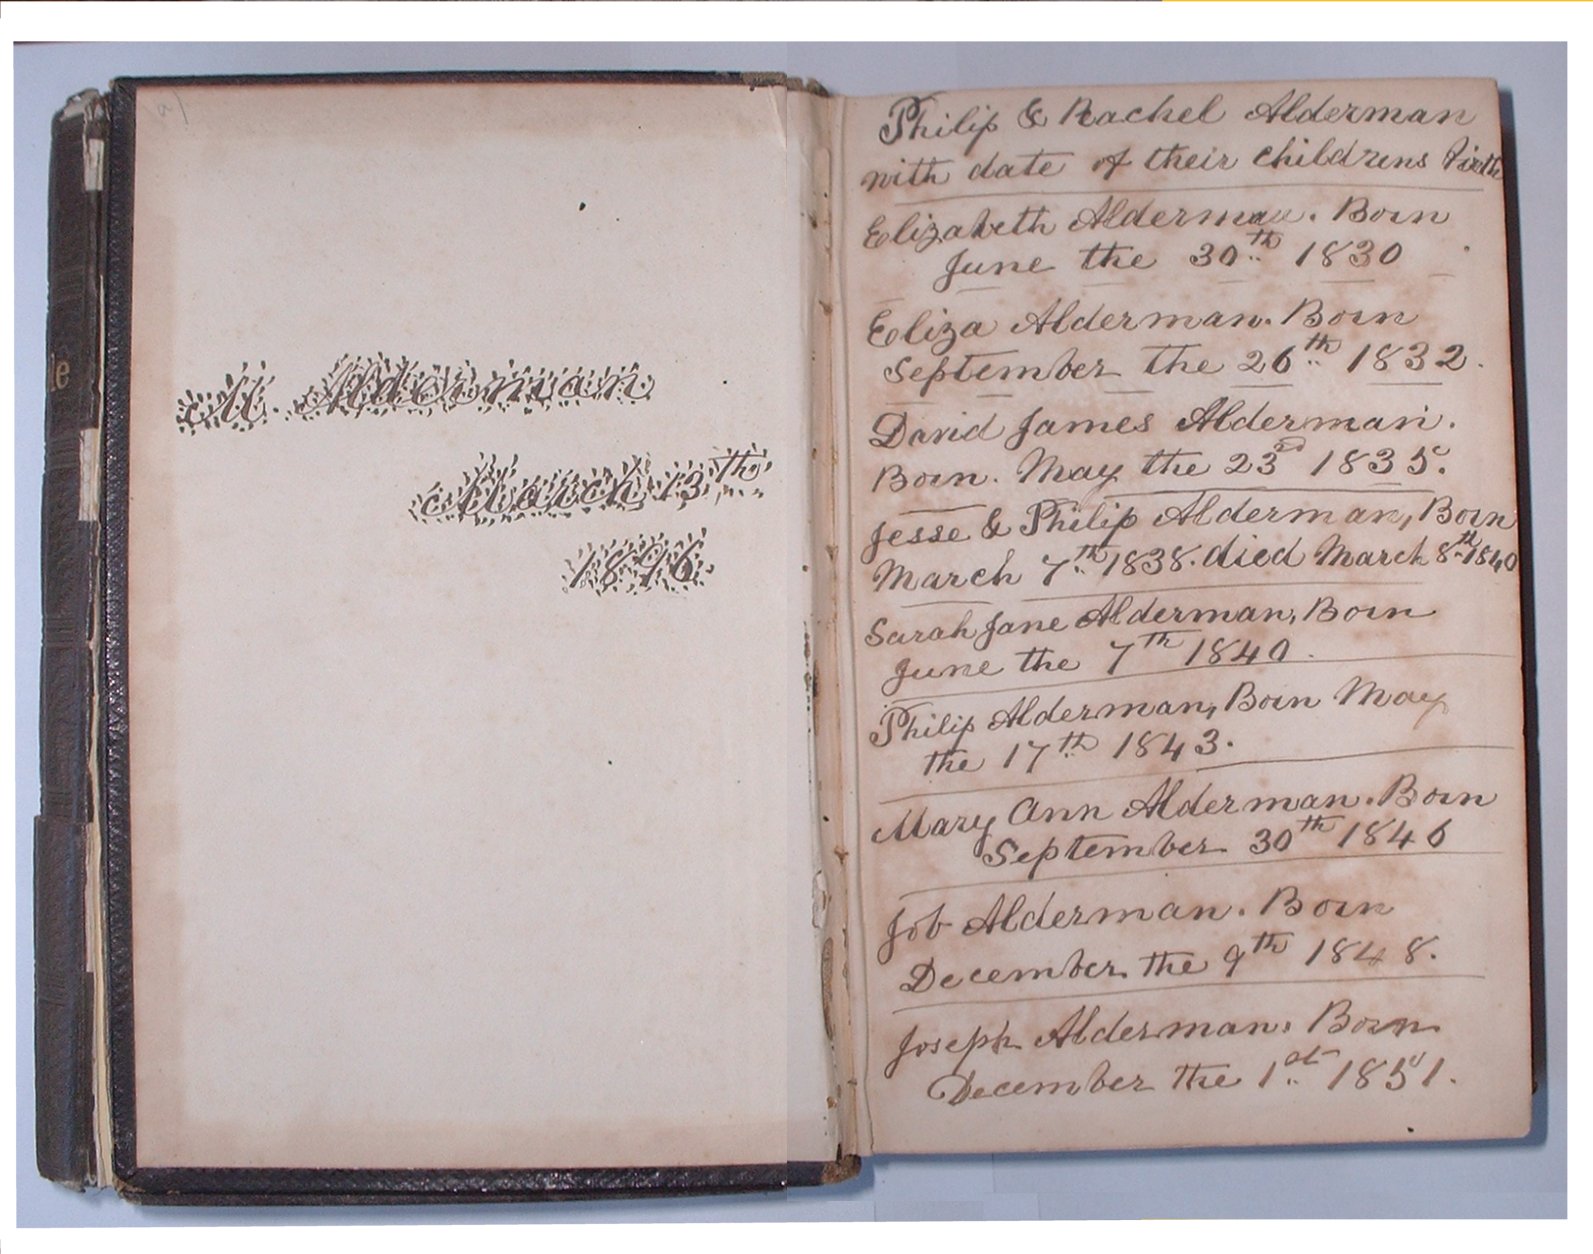 le
a)
M. Alderman
March 13th
1896.
Philip & Rachel Alderman
with date of their childrens birth
Elizabeth Alderman. Born
June the 30th 1830
Eliza Alderman. Born
September the 26th 1832.
David James Alderman.
Born. May the 23d 1835.
Jesse & Philip Alderman, Born
March 7th 1838. died March 8th 1840
Sarah Jane Alderman, Born
June the 7th 1840.
Philip Alderman, Born May
the 17th 1843.
Mary Ann Alderman. Born
September 30th 1846
Job Alderman. Born
December the 9th 1848.
Joseph Alderman. Born
December the 1st 1851.